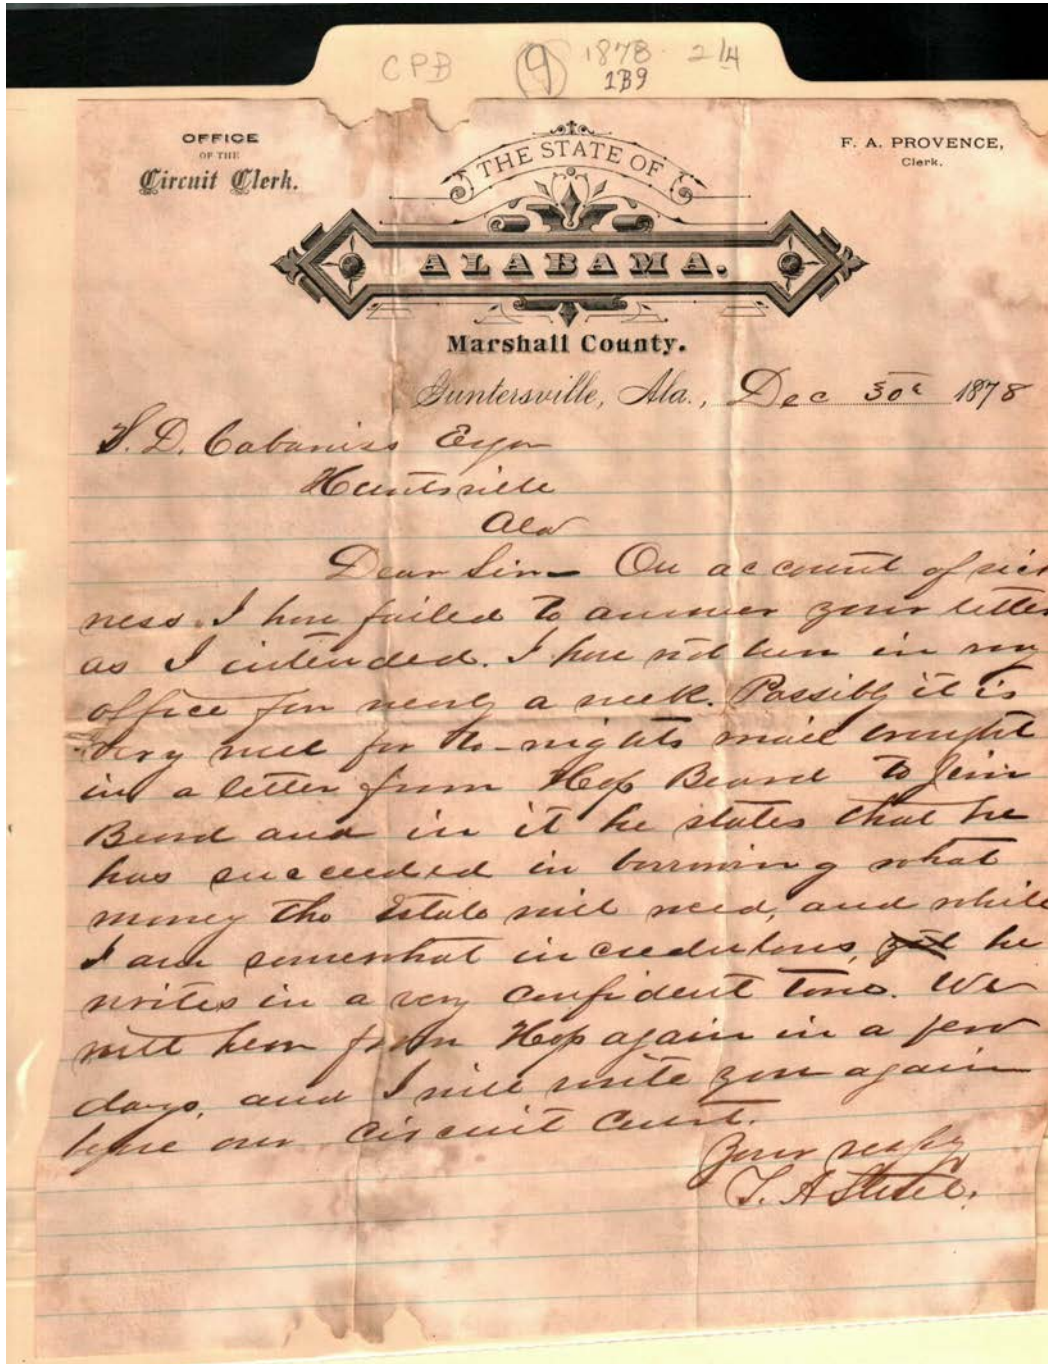 CPB 9 1878 2/4
1B9
OFFICE
OF THE
Circuit Clerk.
F. A. PROVENCE,
Clerk.
THE STATE OF
ALABAMA.
Marshall County.
Guntersville, Ala., Dec 30th 1878
S. D. Cabaniss Esqr
Huntsville
Ala
Dear Sir - On account of sick
ness. I have failed to answer your letter
as I intended. I have not been in my
office for nearly a week. Possibly it is
very well for to-nights mail brought
in a letter from Hop Beard to Jim
Beard and in it he states that he
has succeeded in borrowing what
money the Estate will need, and while
I am somewhat incredulous, yet he
writes in a very confident tone. We
will hear from Hop again in a few
days, and I will write you again
before our circuit court.
Your respy